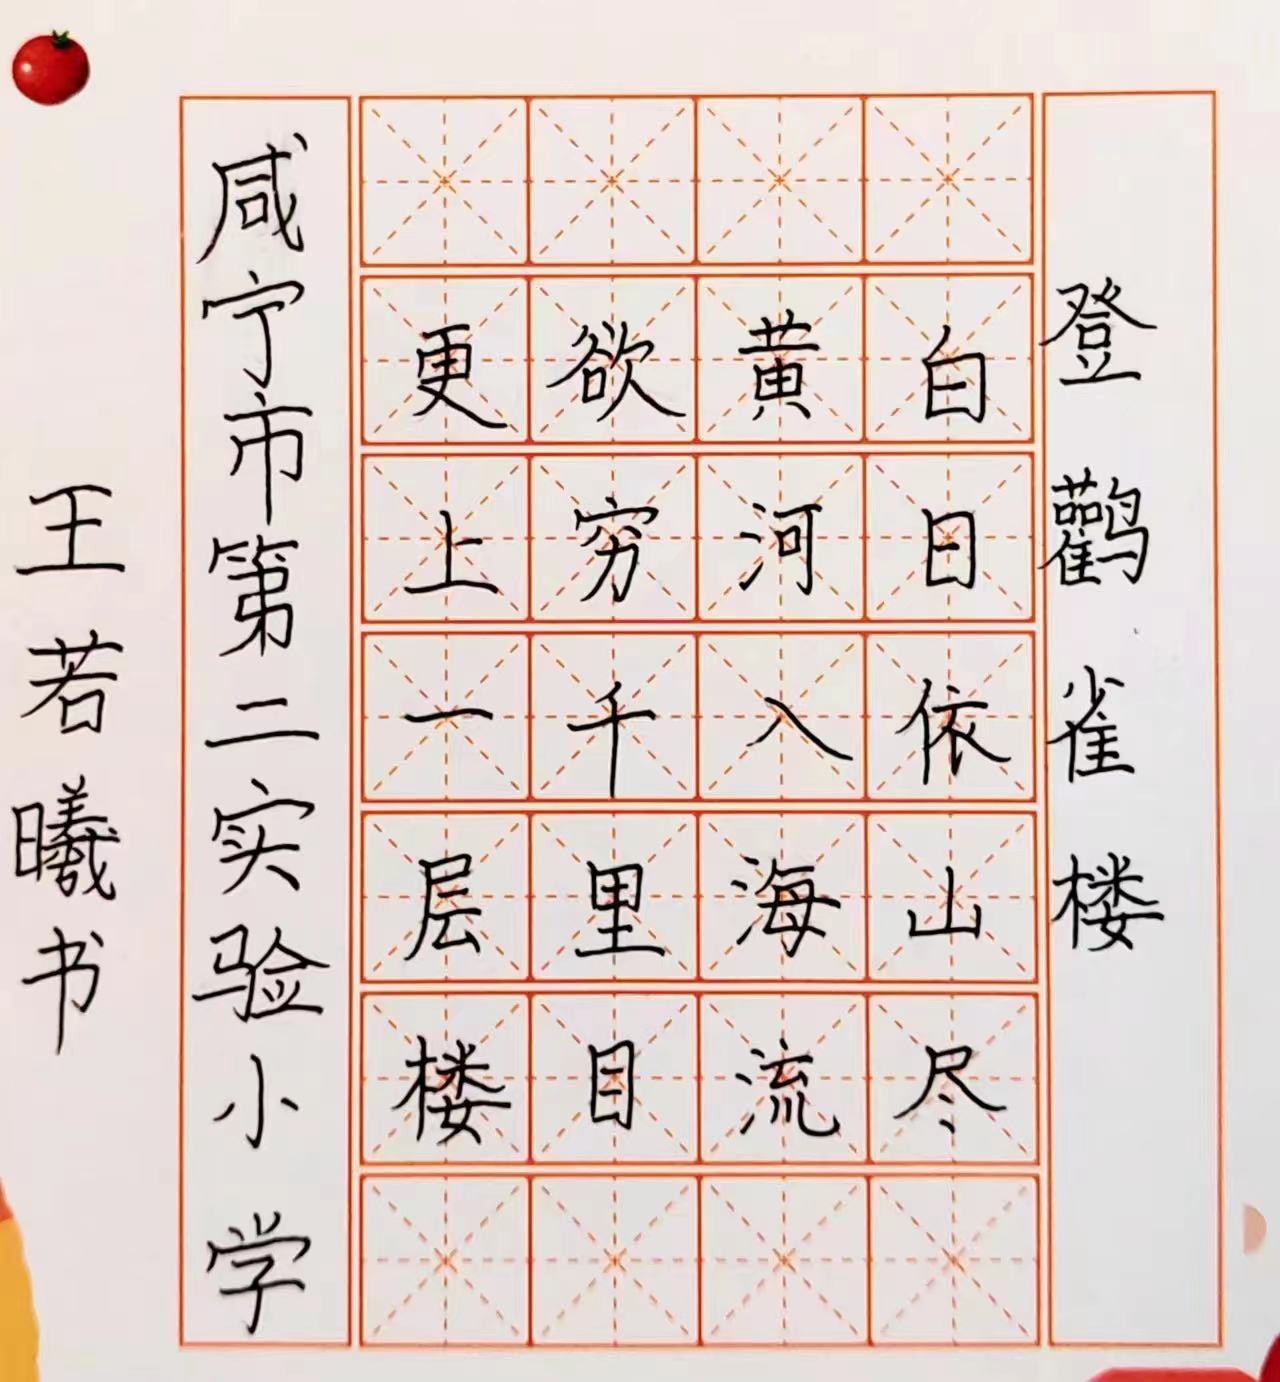 登鹳雀楼
白日依山尽
黄河入海流
欲穷千里目
更上一层楼
咸宁市第二实验小学
王若曦书